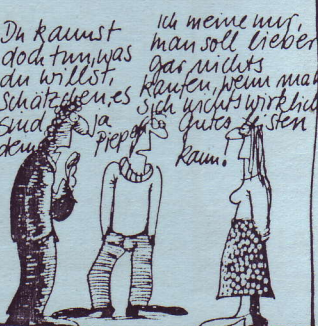 Du kannst
doch tun, was
du willst,
Schätzchen, es
sind ja
deine Piepen
Ich meine nur,
man soll lieber
gar nichts
kaufen, wenn man
sich nichts wirklich
Gutes leisten
kann!